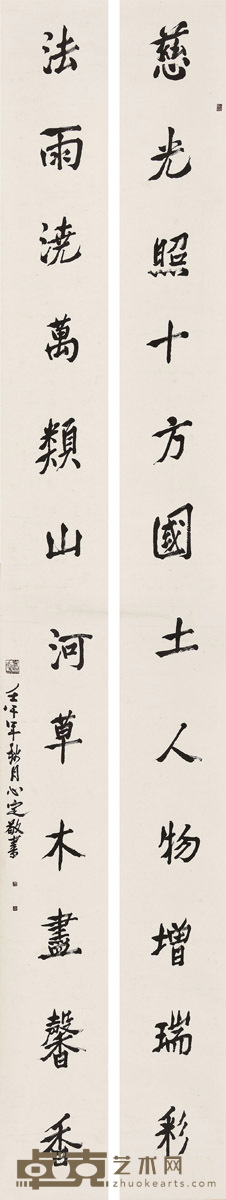 慈光照十方國土人物增瑞彩
法雨澆萬類山河草木盡馨香
壬午年秋月心定敬書
卓克艺术网
zhuokearts.com